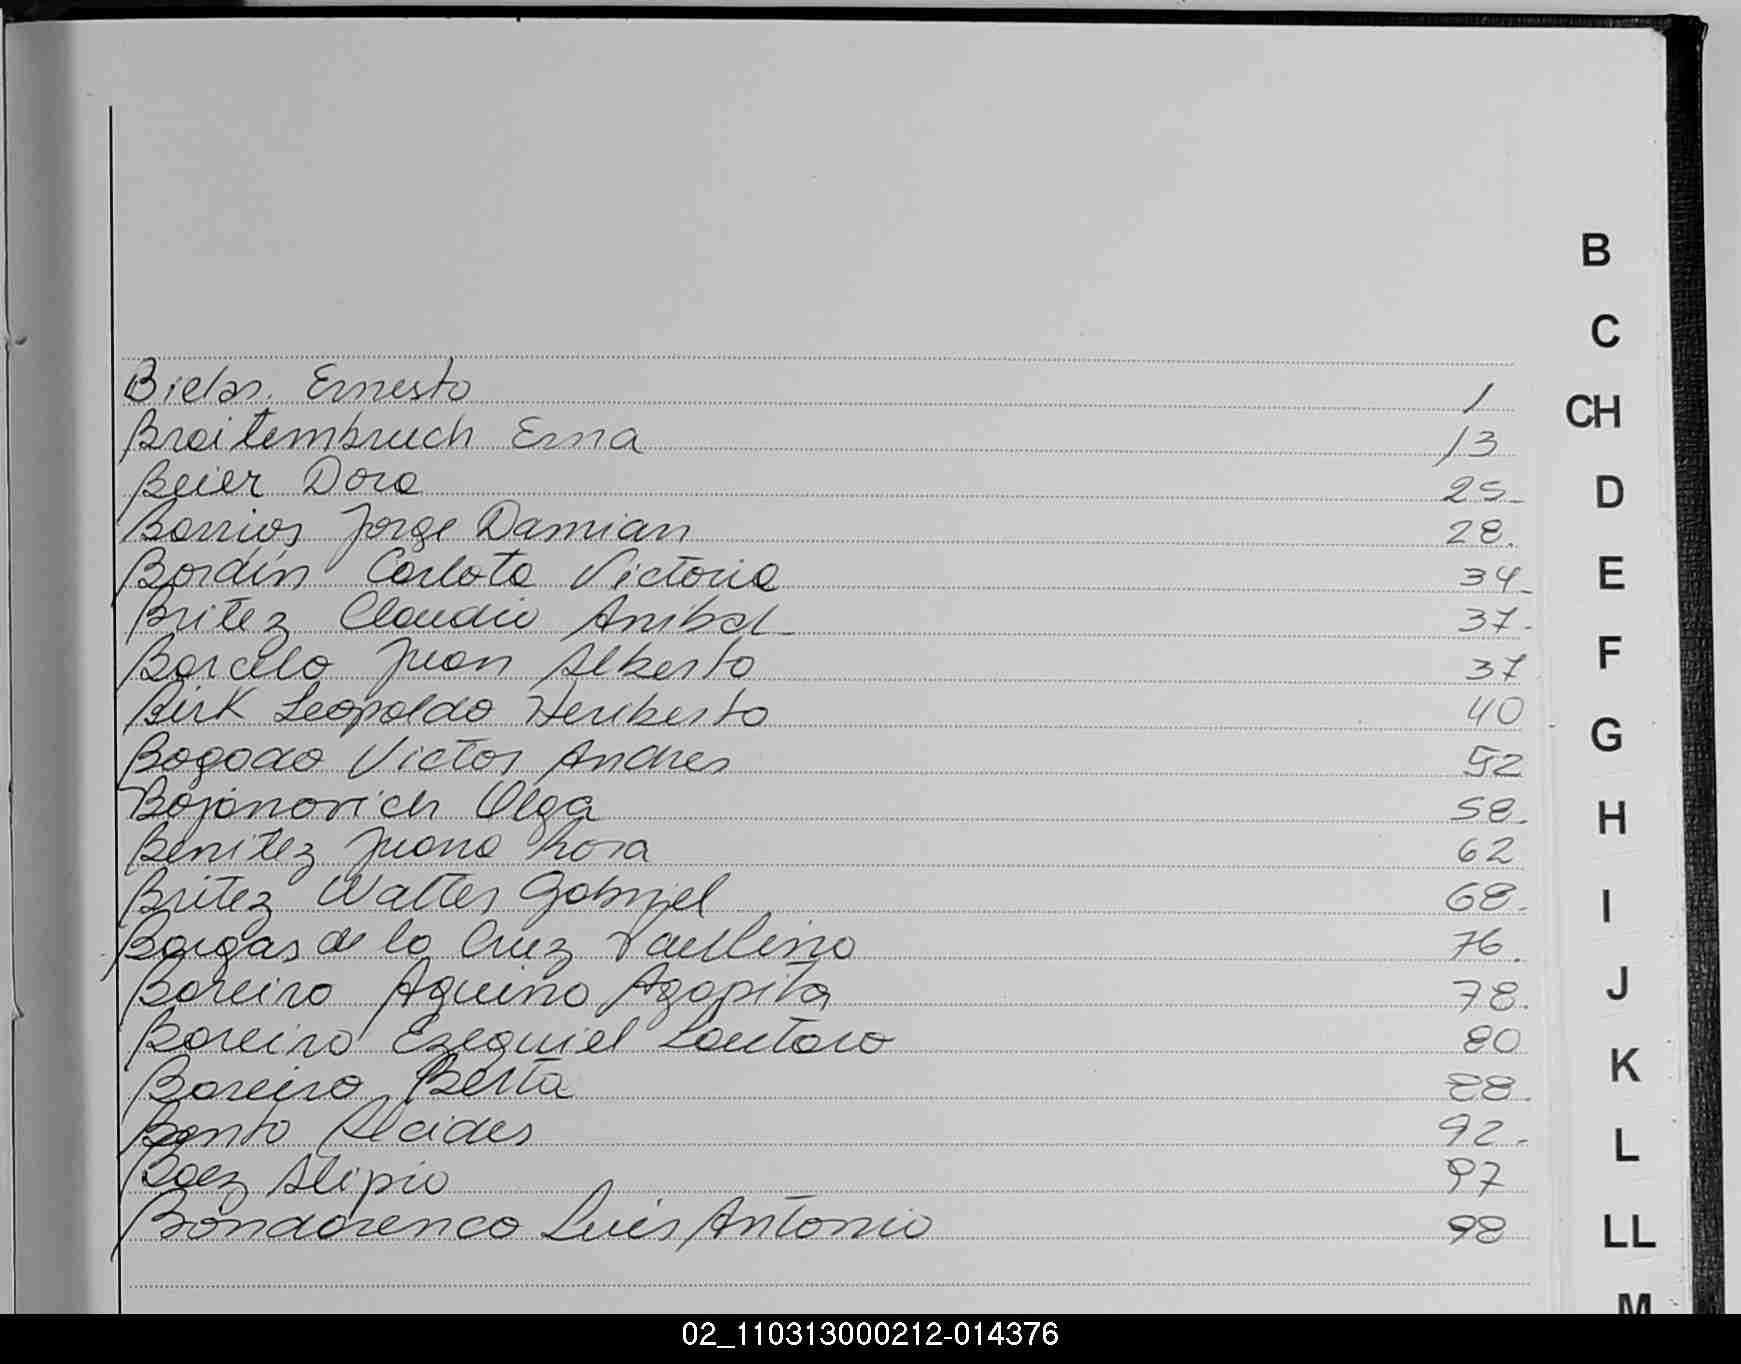 Bielas. Ernesto 1
Breitembruch Erna 13
Beier Dora 25
Barrios Jorge Damian 28.
Bordín Carlota Victoria 34
Britez Claudio Anibal 37.
Barcelo Juan Alberto 37
Birk Leopoldo Heriberto 40
Bogado Victor Andres 52
Bojanovich Olga 58.
Benitez Juana Rosa 62
Britez Walter Gabriel 68.
Bargas de la Cruz Paulino 76.
Bareiro Aquino Agapita 78.
Bareiro Ezequiel Lautaro 80
Bareiro Berta 88.
Bento Alcides 92.
Baez Alipio 97
Bondarenco Luis Antonio 98
B
C
CH
D
E
F
G
H
I
J
K
L
LL
M
02_110313000212-014376